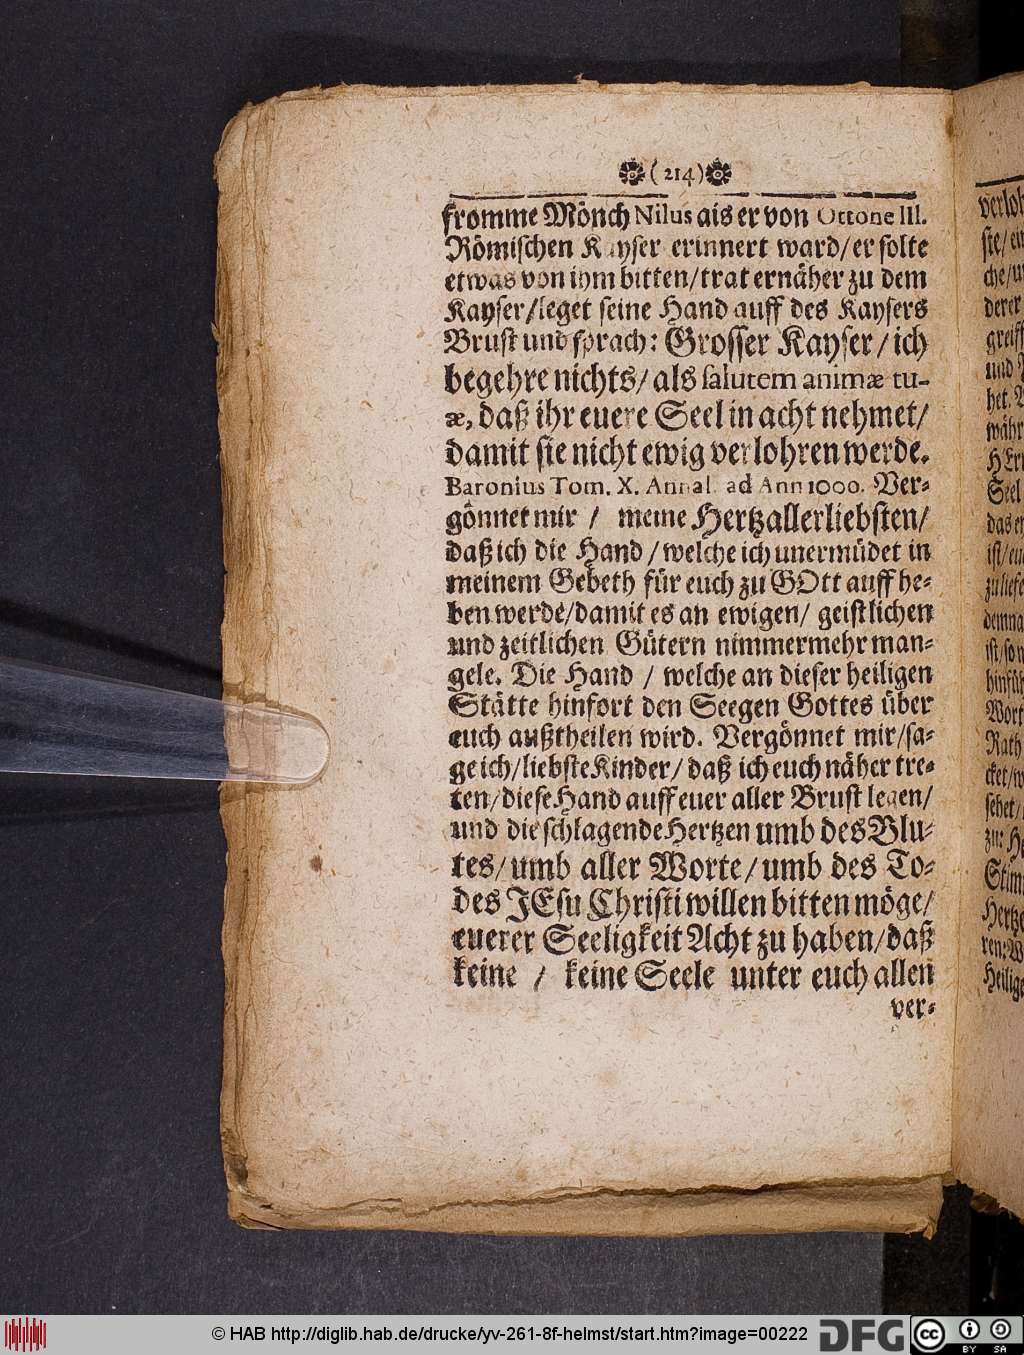 ( 214 )
fromme Mönch Nilus als er von Ottone III.
Römischen Kayser erinnert ward/ er solte
etwas von ihm bitten/ trat er näher zu dem
Kayser/ leget seine Hand auff des Kaysers
Brust und sprach: Grosser Kayser/ ich
begehre nichts/ als salutem animæ tu-
æ, daß ihr euere Seel in acht nehmet/
damit sie nicht ewig verlohren werde.
Baronius Tom. X. Annal. ad Ann 1000. Ver-
gönnet mir / meine Hertzallerliebsten/
daß ich die Hand / welche ich unermüdet in
meinem Gebeth für euch zu GOtt auff he-
ben werde/ damit es an ewigen/ geistlichen
und zeitlichen Gütern nimmermehr man-
gele. Die Hand / welche an dieser heiligen
Stätte hinfort den Seegen Gottes über
euch außtheilen wird. Vergönnet mir/ sa-
ge ich/ liebste Kinder/ daß ich euch näher tre-
ten/ diese Hand auff euer aller Brust legen/
und die schlagende Hertzen umb des Blu-
tes/ umb aller Worte/ umb des To-
des JEsu Christi willen bitten möge/
euerer Seeligkeit Acht zu haben/ daß
keine / keine Seele unter euch allen
ver-
© HAB http://diglib.hab.de/drucke/yv-261-8f-helmst/start.htm?image=00222
DFG
cc BY SA